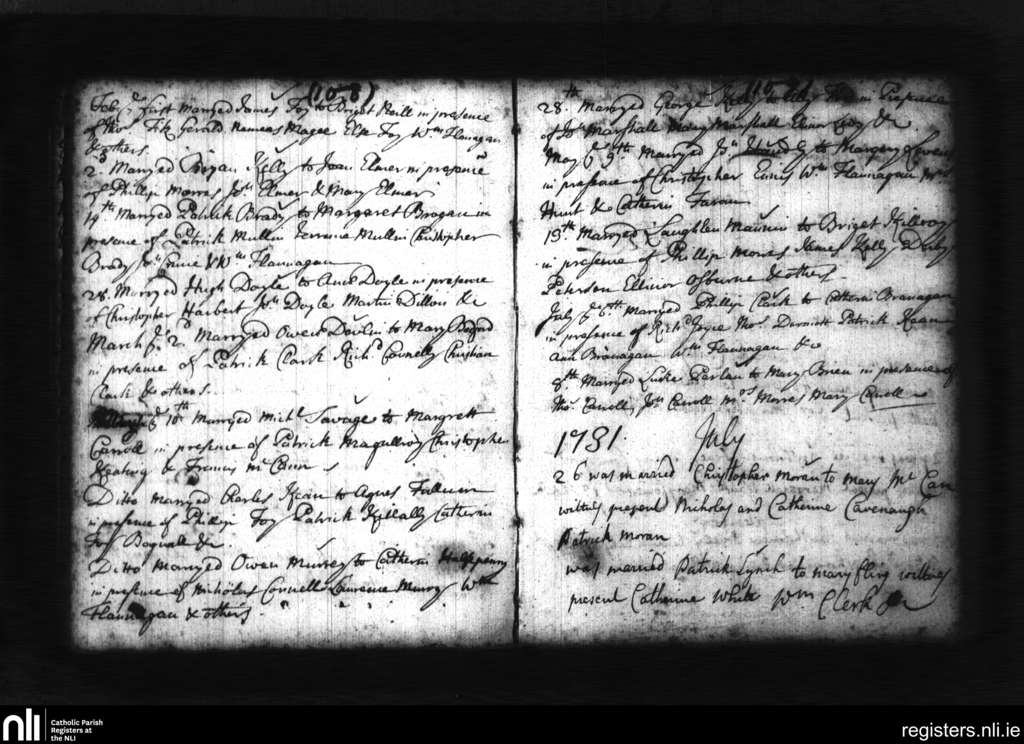 (108)
Feb. ye first marryed James Foy to Bridget Neill in presence
of Thos. Fitz Gerald Magee Foy Wm Flannagan
& others.
2. Marryed Bryan Kelly to Jean Elmer in presence
of Phillip Morres Jon. Elmer & Mary Elmer
19th Marryed Patrick Brady to Margaret Brogan in
presence of Patrick Mullen Terrence Mullen Christopher
Brady Wm Flannagan
28. Marryed Hugh Doyle to Ann Doyle in presence
of Christopher Harbert Jon. Doyle Martin Dillon &c
March ye 2d. Marryed Owen Devlin to Mary
in presence of Patrick Clark Richd Connelly Christian
Clark & others.
ye 10th Marryed Michl Savage to Margrett
Carroll in presence of Patrick Christophe
Keating & Francis McCann
Ditto marryed Charles Kean to Agnes
in presence of Phillip Foy Patrick Catherin
Foy &c.
Ditto Marryed Owen Murrey to Catherin Halfpenny
in presence of Nicholas Connell Lawrence Murry Wm
Flannagan & others
28.th Marryed George Kelly to in Presence
of Jon Marshall Mary Marshall Elinor &c
May ye 9th Marryed Jon to Margery
in presence of Christopher Ennis Wm Flannagan
Hunt & Catherin
13th. Marryed Laughlen to Briget Killroy
in presence of Phillip Morres James Kelly
Peterson Ellinor Osburne & others
July ye 6th Marryed Phillip Clark to Catherin Branagan
in presence of Richd Joyce Thos. Patrick Kean
Ann Branagan Wm Flannagan &c
8th Marryed Luke to Mary in presence of
Thos. Carroll, Jon Carroll Mrs Morres Mary Carroll
1781. July
26 was married Christopher Moran to Mary McCan
witness present Nicholas and Catherine Cavenaugh
Patrick Moran
was married Patrick Lynch to mary witness
present Catherine White Wm Clerk
nli
Catholic Parish
Registers at
the NLI
registers.nli.ie